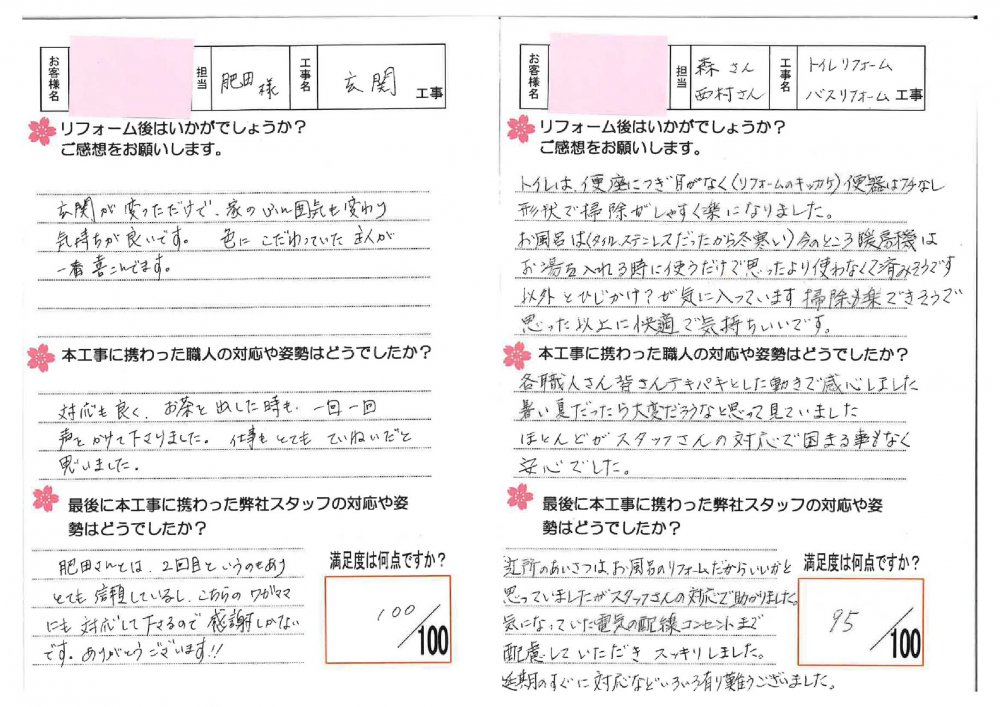 お客様名
担当
肥田様
工事名
玄関 工事
リフォーム後はいかがでしょうか?
ご感想をお願いします。
玄関が変っただけで、家のふん囲気も変わり
気持ちが良いです。 色にこだわっていた主人が
一番喜こんでます。
本工事に携わった職人の対応や姿勢はどうでしたか?
対応も良く、お茶を出した時も、一回一回
声をかけて下さりました。仕事もとてもていねいだと
思いました。
最後に本工事に携わった弊社スタッフの対応や姿
勢はどうでしたか?
肥田さんとは、2回目というのもあり
とても信頼しているし、こちらのワガママ
にも対応して下さるので感謝しかない
です。ありがとうございます!!
満足度は何点ですか?
100/100
お客様名
担当
森さん
西村さん
工事名
トイレリフォーム
バスリフォーム 工事
リフォーム後はいかがでしょうか?
ご感想をお願いします。
トイレは、便座につぎ目がなく(リフォームのキッカケ)便器はフチなし
形状で掃除がしやすく楽になりました。
お風呂は(タイルステンレスだったから冬寒い)今のところ暖房機は
お湯を入れる時に使うだけで思ったより使わなくて済みそうです
以外とひじかけ?が気に入っています掃除も楽できそうで
思った以上に快適で気持ちいいです。
本工事に携わった職人の対応や姿勢はどうでしたか?
各職人さん皆さんテキパキとした動きで感心しました
暑い夏だったら大変だろうなと思って見ていました
ほとんどがスタッフさんの対応で困まる事もなく
安心でした。
最後に本工事に携わった弊社スタッフの対応や姿
勢はどうでしたか?
近所のあいさつは、お風呂のリフォームだからいいかと
思っていましたがスタッフさんの対応で助かりました。
気になっていた電気の配線コンセントまで
配慮していただき スッキリしました。
延期のすぐに対応などいろいろ有り難うございました。
満足度は何点ですか?
95/100